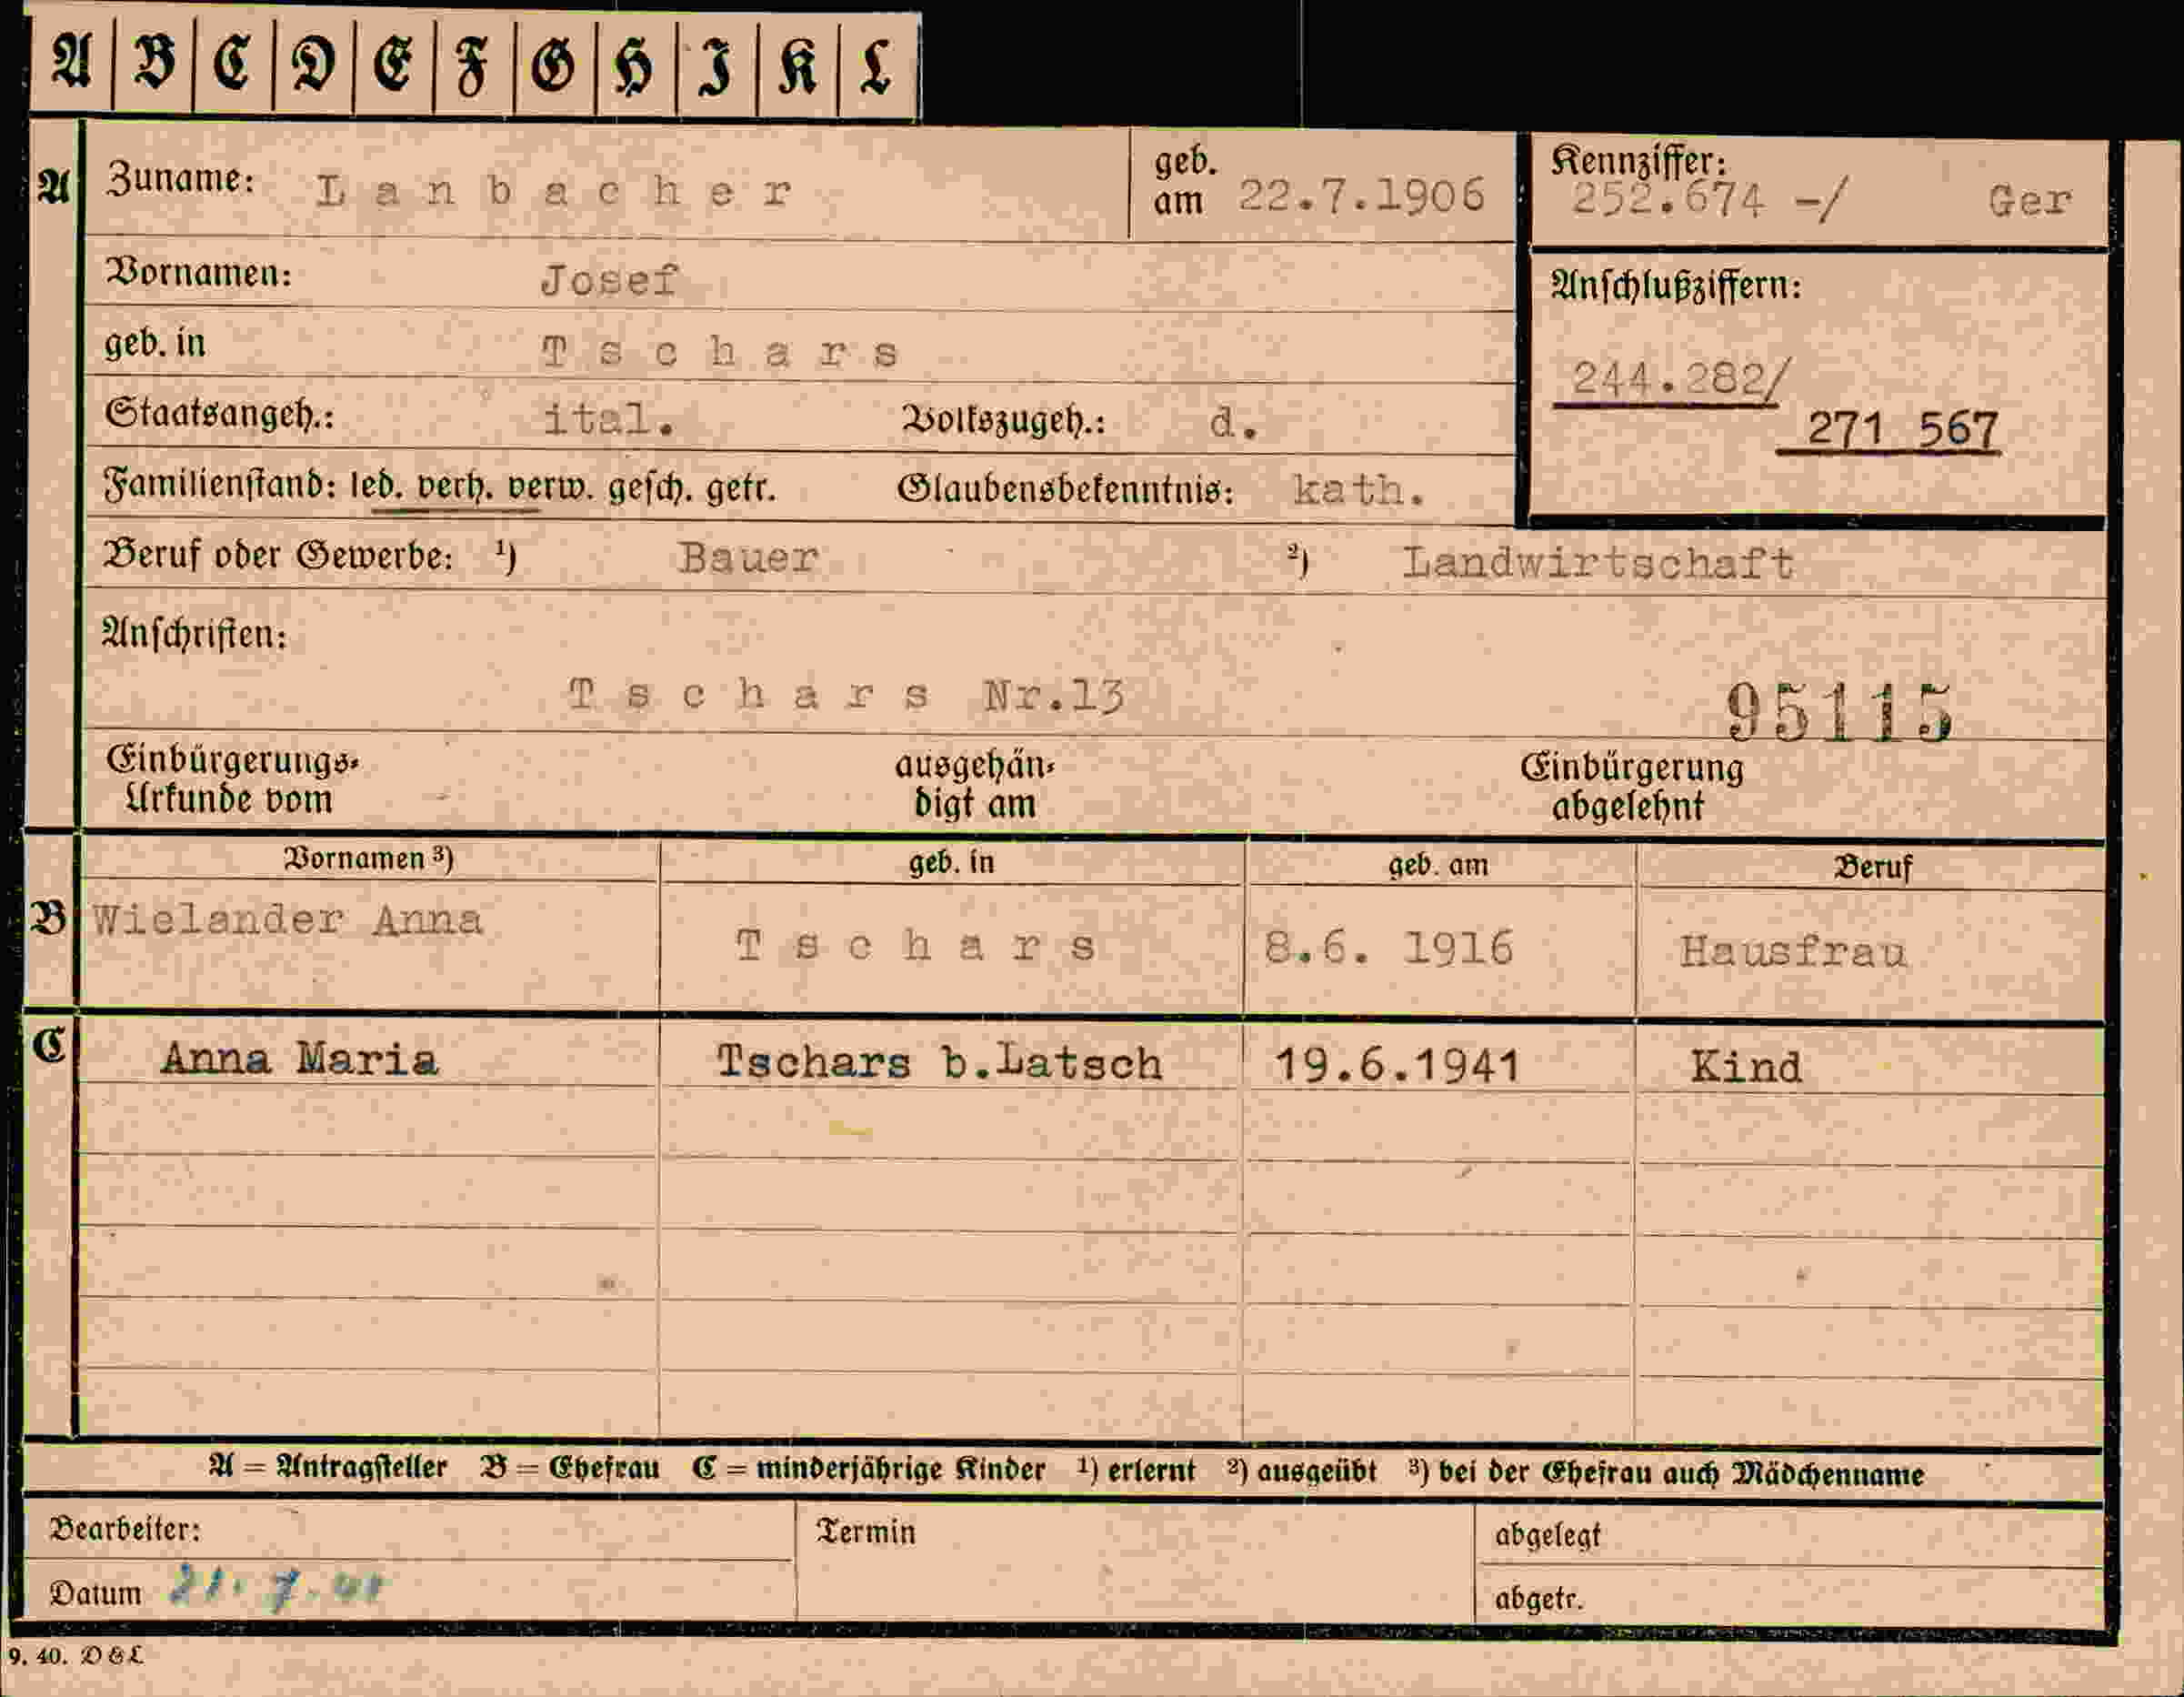 A B C D E F G H I K L
A Zuname: Lanbacher geb. am 22.7.1906 Kennziffer: 252.674 -/ Ger
Vornamen: Josef
Anschlußziffern:
geb. in Tschars
244.282/
Staatsangeh.: ital. Volkszugeh.: d.
271 567
Familienstand: led. verh. verw. gesch. getr. Glaubensbekenntnis: kath.
Beruf oder Gewerbe: 1) Bauer 2) Landwirtschaft
Anschriften:
Tschars Nr.13
95115
Einbürgerungs-
Urkunde vom
ausgehän-
digt am
Einbürgerung
abgelehnt
Vornamen 3) geb. in geb. am Beruf
B Wielander Anna Tschars 8.6. 1916 Hausfrau
C Anna Maria Tschars b.Latsch 19.6.1941 Kind
A = Antragsteller B = Ehefrau C = minderjährige Kinder 1) erlernt 2) ausgeübt 3) bei der Ehefrau auch Mädchenname
Bearbeiter: Termin abgelegt
Datum abgetr.
9. 40. D & L